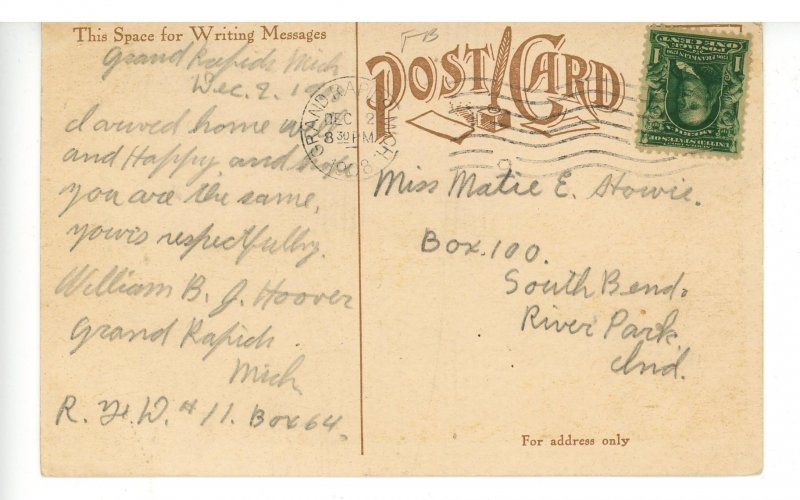 This Space for Writing Messages
Grand Rapids Mich
Dec. 2. 19
I arived home
and Happy and hope
you are the same,
yours respectfully.
William B. J. Hoover
Grand Rapids
Mich
R. F. D. # 11. Box 64.
FB
POST CARD
GRAND RAPIDS, MICH.
DEC 2
8 30 PM
1908
Miss Matie E. Howie.
Box. 100.
South Bend.
River Park
Ind.
For address only
POSTAGE
ONE CENT
1 1
FRANKLIN
AMERICA
UNITED STATES OF